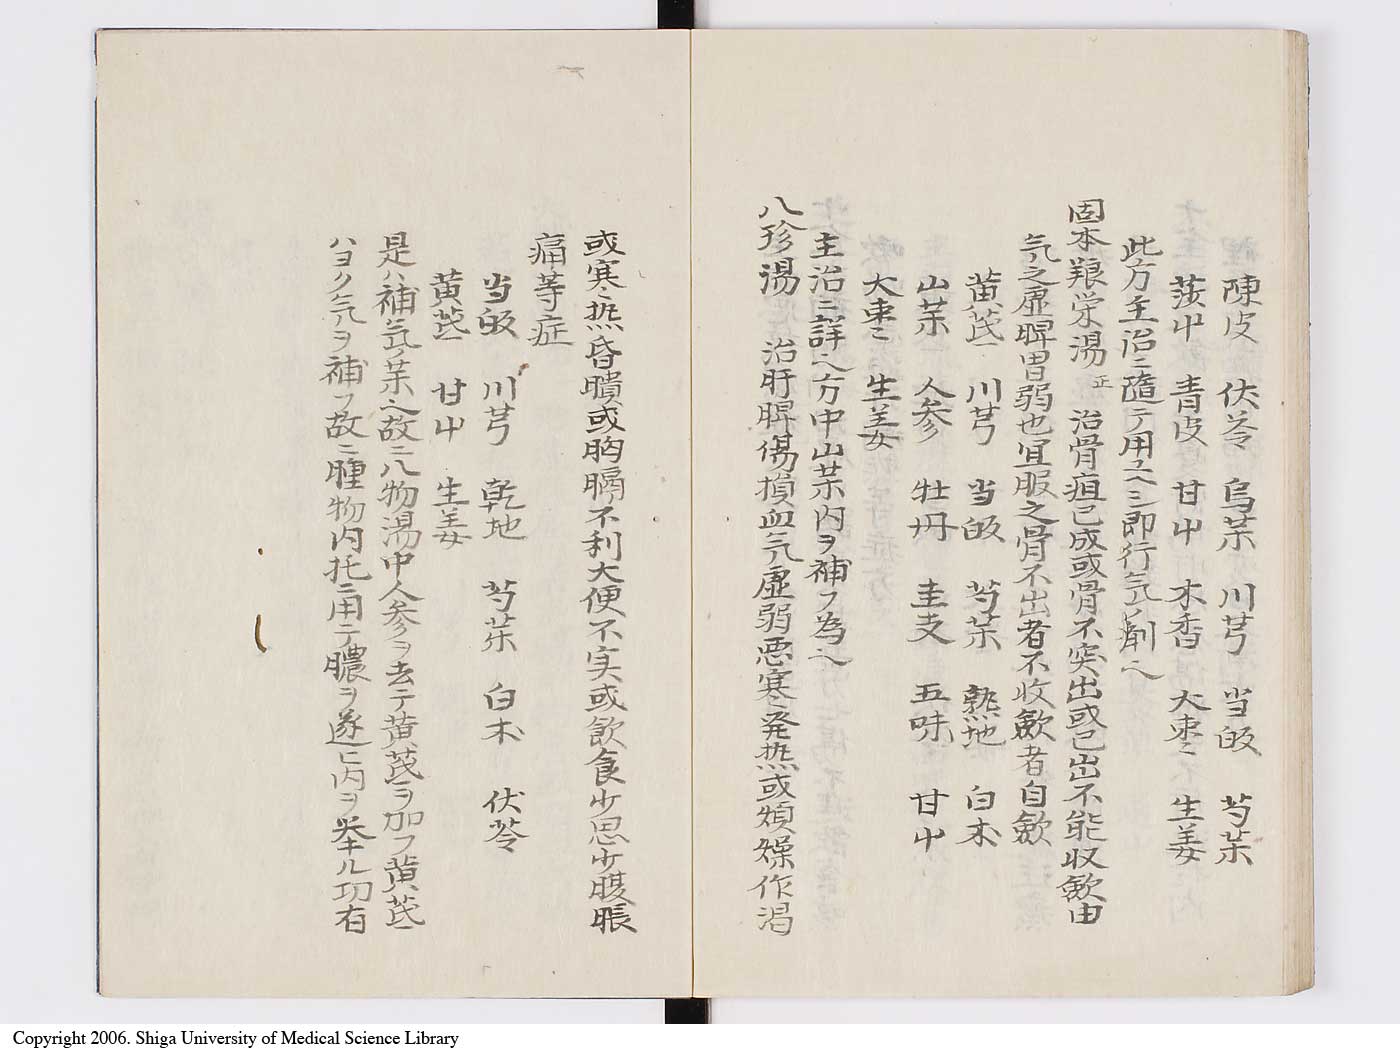 陳皮 伏苓 烏茱 川芎 当皈 芍茱
莎中 青皮 甘中 木香 大枣 生姜
此方主治ニ隨テ用ユヘシ即行氣ノ剤ヘ
固本羪栄湯 正 治骨疽已成或骨不突出或已出不能収歛由
氣之虚脾胃弱也宜服之骨不出者不收歛者自歛
黄芪 川芎 当皈 芍茱 熟地 白朮
山茱 人参 牡丹 圭支 五味 甘中
大枣 生姜
主治ニ詳ヘ方中山茱内ヲ補フ為ヘ
八珍湯 治肝脾傷損血氣虚弱悪寒発热或煩燥作渇
或寒热昏聵或胸膈不利大便不实或飲食少思少腹脹
痛等症
当皈 川芎 乾地 芍茱 白朮 伏苓
黄芪 甘中 生姜
是ハ補氣ノ茱ヘ故ニ八物湯中人参ヲ去テ黄芪ヲ加フ黄芪
ハヨク氣ヲ補フ故ニ腫物内托ニ用テ膿ヲ遂ヒ内ヲ挙ル功有
Copyright 2006. Shiga University of Medical Science Library